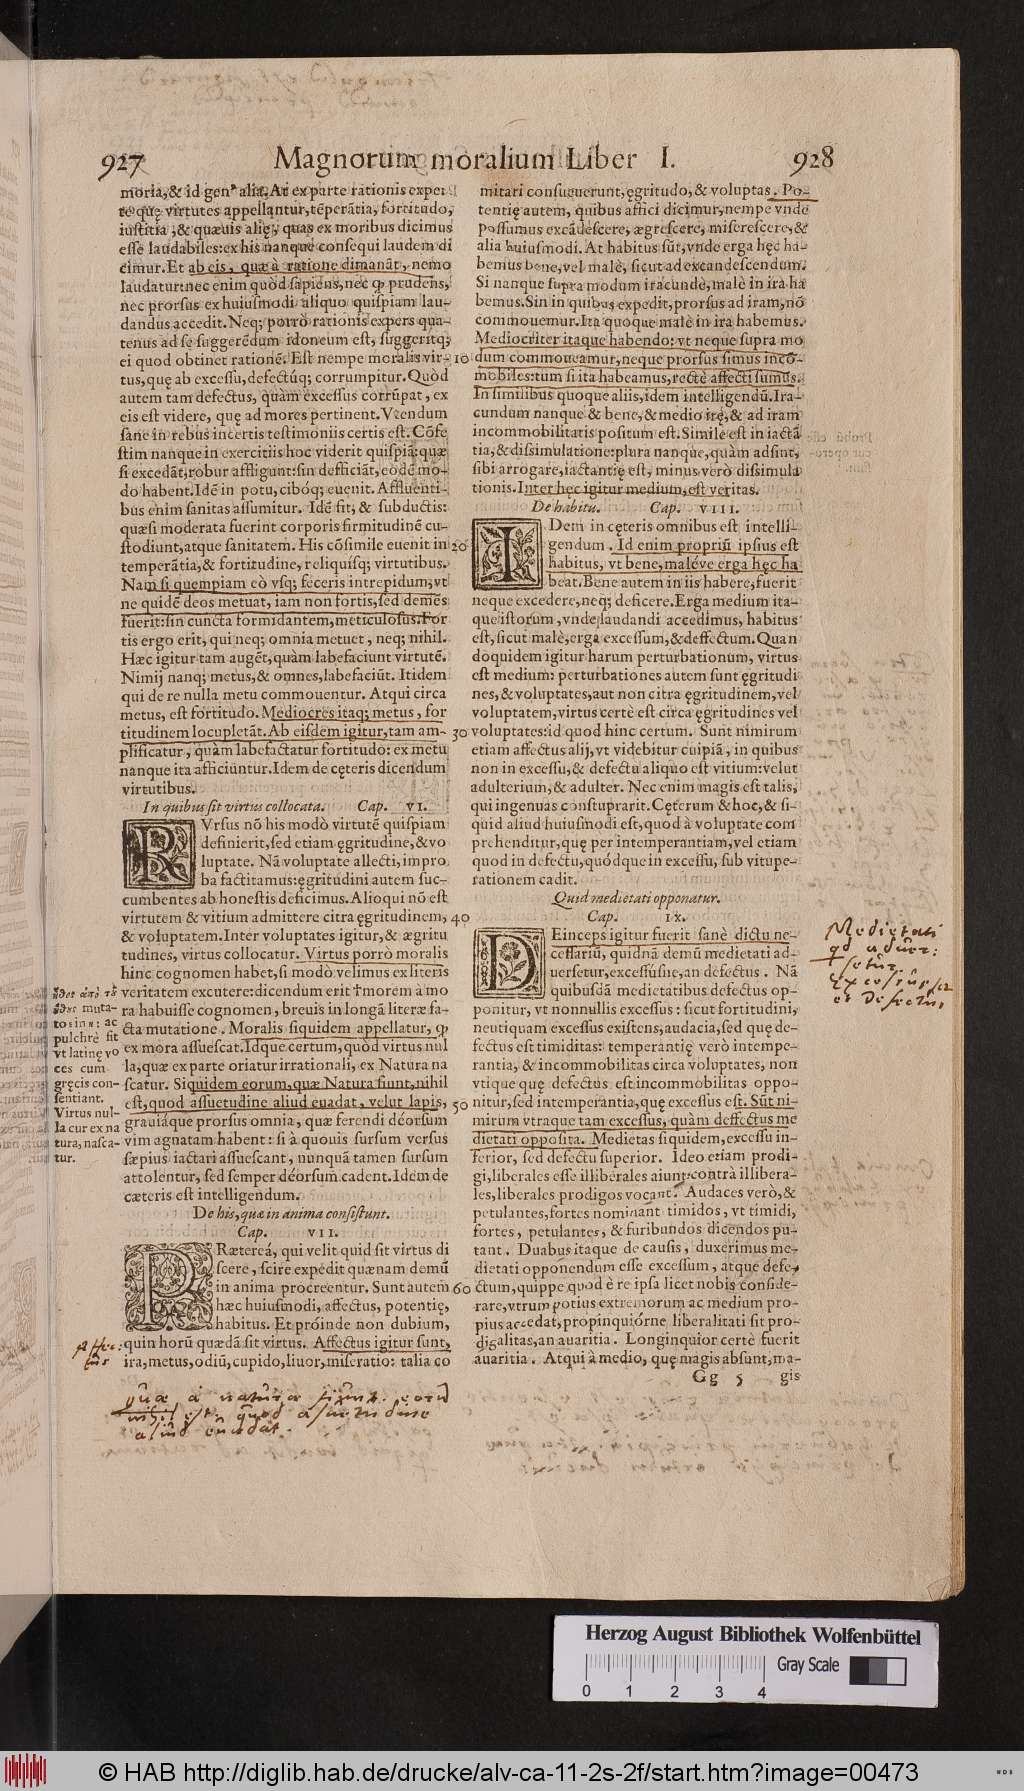 927 Magnorum moralium Liber I. 928
moria,& id genꝰ alia. At ex parte rationis exper
te quę virtutes appellantur,tẽperãtia, fortitudo,
iustitia ,& quæuis alię, quas ex moribus dicimus
esse laudabiles:ex his nanque consequi laudem di
cimur.Et ab eis, quæ à ratione dimanãt, nemo
laudatur:nec enim quòd sapiens,nec ꝙ prudens,
nec prorsus ex huiusmodi aliquo quispiam lau-
dandus accedit. Neq; porrò rationis expers qua-
tenus ad se suggerẽdum idoneum est, suggeritq;
ei quod obtinet rationẽ. Est nempe moralis vir-
tus,quę ab excessu,defectúq; corrumpitur. Quòd
autem tam defectus, quàm excessus corrũpat, ex
eis est videre, quę ad mores pertinent. Vtendum
sane in rebus incertis testimoniis certis est. Cõfe
stim nanque in exercitiis hoc viderit quispiã: quæ
si excedãt,robur affligunt:sin defficiãt,eodẽ mo-
do habent. Idẽ in potu,cibóq; euenit. Affluenti-
bus enim sanitas assumitur. Idẽ fit, & subductis:
quæsi moderata fuerint corporis firmitudinẽ cu-
stodiunt,atque sanitatem. His cõsimile euenit in
temperãtia,& fortitudine, reliquísq; virtutibus.
Nam si quempiam eò vsq; feceris intrepidum,vt
ne quidẽ deos metuat, iam non fortis,sed demẽs
fuerit:sin cuncta formidantem,meticulosus. For
tis ergo erit, qui neq; omnia metuet , neq; nihil.
Hæc igitur tam augẽt,quàm labefaciunt virtutẽ.
Nimij nanq; metus,& omnes,labefaciũt. Itidem
qui de re nulla metu commouentur. Atqui circa
metus, est fortitudo. Mediocres itaq; metus , for
titudinem locupletãt. Ab eisdem igitur,tam am-
plificatur , quàm labefactatur fortitudo: ex metu
nanque ita afficiũntur. Idem de cęteris dicendum
virtutibus.
In quibus sit virtus collocata. Cap. VI.
RVrsus nõ his modò virtutẽ quispiam
definierit,sed etiam ęgritudine,& vo
luptate. Nã voluptate allecti, impro
ba factitamus:ęgritudini autem suc-
cumbentes ab honestis deficimus. Alioqui nõ est
virtutem & vitium admittere citra ęgritudinem,
& voluptatem. Inter voluptates igitur,& ægritu
tudines, virtus collocatur. Virtus porrò moralis
hinc cognomen habet,si modò velimus ex literis
veritatem excutere: dicendum erit †morem à mo
ra habuisse cognomen, breuis in longã literæ fa-
cta mutatione . Moralis siquidem appellatur, ꝙ
ex mora assuescat. Idque certum,quòd virtus nul
la,quæ ex parte oriatur irrationali, ex Natura na
scatur. Siquidem eorum,quæ Natura fiunt,nihil
est,quod assuetudine aliud euadat, velut lapis,
grauiáque prorsus omnia, quæ ferendi déorsum
vim agnatam habent: si à quouis sursum versus
sæpius iactari assuescant, nunquã tamen sursum
attolentur, sed semper déorsum cadent. Idem de
cæteris est intelligendum.
De his, quæ in anima consistunt.
Cap. VII.
PRætereá, qui velit quid sit virtus di
scere, scire expedit quænam demũ
in anima procreentur. Sunt autem
hæc huiusmodi, affectus, potentię,
habitus. Et próinde non dubium,
quin horũ quædã sit virtus. Affectus igitur sunt,
ira,metus,odiũ,cupido,liuor,miseratio: talia co
ἦθος ἀπὸ τȣ͂
ἔθος muta-
to ε in η: ac
pulchrè sit
vt latinę vo
ces cum
gręcis con-
sentiant.
Virtus nul-
la cur ex na
tura, nasca-
tur.
Affec:
tus
quæ à natura fiunt eorũ
nihil est, quod assuetudine
aliud euadat.
10
20
30
40
50
60
mitari consueuerunt,ęgritudo,& voluptas . Po-
tentię autem, quibus affici dicimur,nempe vnde
possumus excãdescere, ægrescere, miserescere,&
alia huiusmodi. At habitus sũt,vnde erga hęc ha-
bemus bene,vel malè, sicut ad excandescendum.
Si nanque supra modum iracundè,malè in ira ha
bemus. Sin in quibus expedit,prorsus ad iram,nõ
commouemur. Ita quoque malè in ira habemus.
Mediocriter itaque habendo: vt neque supra mo
dum commoueamur, neque prorsus simus inco-
mobiles: tum si ita habeamus, rectè affecti sumus.
In similibus quoque aliis,idem intelligendũ. Ira-
cundum nanque & bene,& medio irę,& ad iram
incommobilitatis positum est. Simile est in iactã
tia,& dissimulatione:plura nanque,quàm adsint,
sibi arrogare,iactantię est, minus verò dissimula
tionis. Inter hęc igitur medium,est veritas.
De habitu. Cap. VIII.
IDem in cęteris omnibus est intelli-
gendum . Id enim propriũ ipsius est
habitus, vt bene, maléve erga hęc ha
beat. Bene autem in iis habere,fuerit
neque excedere,neq; deficere. Erga medium ita-
que istorum ,vnde laudandi accedimus, habitus
est,sicut malè,erga excessum,& deffectum. Quan
doquidem igitur harum perturbationum, virtus
est medium: perturbationes autem sunt ęgritudi
nes,& voluptates,aut non citra ęgritudinem,vel
voluptatem,virtus certè est circa ęgritudines vel
voluptates:id quod hinc certum. Sunt nimirum
etiam affectus alij, vt videbitur cuipiã, in quibus
non in excessu,& defectu aliquo est vitium:velut
adulterium,& adulter. Nec enim magis est talis,
qui ingenuas constuprarit. Cęterum & hoc,& si-
quid aliud huiusmodi est,quod à voluptate com
prehenditur,quę per intemperantiam,vel etiam
quod in defectu,quódque in excessu, sub vitupe-
rationem cadit.
Quid medietati opponatur.
Cap. IX.
DEinceps igitur fuerit sanè dictu ne-
cessariũ, quidnã demũ medietati ad-
uersetur,excessúsne,an defectus . Nã
quibusdã medietatibus defectus op-
ponitur, vt nonnullis excessus : sicut fortitudini,
neutiquam excessus existens,audacia,sed quę de-
fectus est timiditas: temperantię verò intempe-
rantia, & incommobilitas circa voluptates, non
vtique quę defectus est incommobilitas oppo-
nitur,sed intemperantia,quę excessus est. Sũt ni-
mirum vtraque tam excessus, quàm deffectus me
dietati opposita. Medietas siquidem,excessu in-
ferior, sed defectu superior. Ideo etiam prodi-
gi,liberales esse illiberales aiunt:contrà illibera-
les,liberales prodigos vocant. Audaces verò,&
petulantes,fortes nominant timidos, vt timidi,
fortes, petulantes, & furibundos dicendos pu-
tant . Duabus itaque de causis, duxerimus me-
dietati opponendum esse excessum, atque defe-
ctum,quippe quod è re ipsa licet nobis conside-
rare,vtrum potius extremorum ac medium pro-
pius accedat,propinquiórne liberalitati sit pro-
digalitas,an auaritia . Longinquior certè fuerit
auaritia . Atqui à medio, quę magis absunt,ma-
Gg 5 gis
Medietati
qd aduer:
setur
excessus ne
et Defectus,
Herzog August Bibliothek Wolfenbüttel
Gray Scale
0 1 2 3 4
© HAB http://diglib.hab.de/drucke/alv-ca-11-2s-2f/start.htm?image=00473